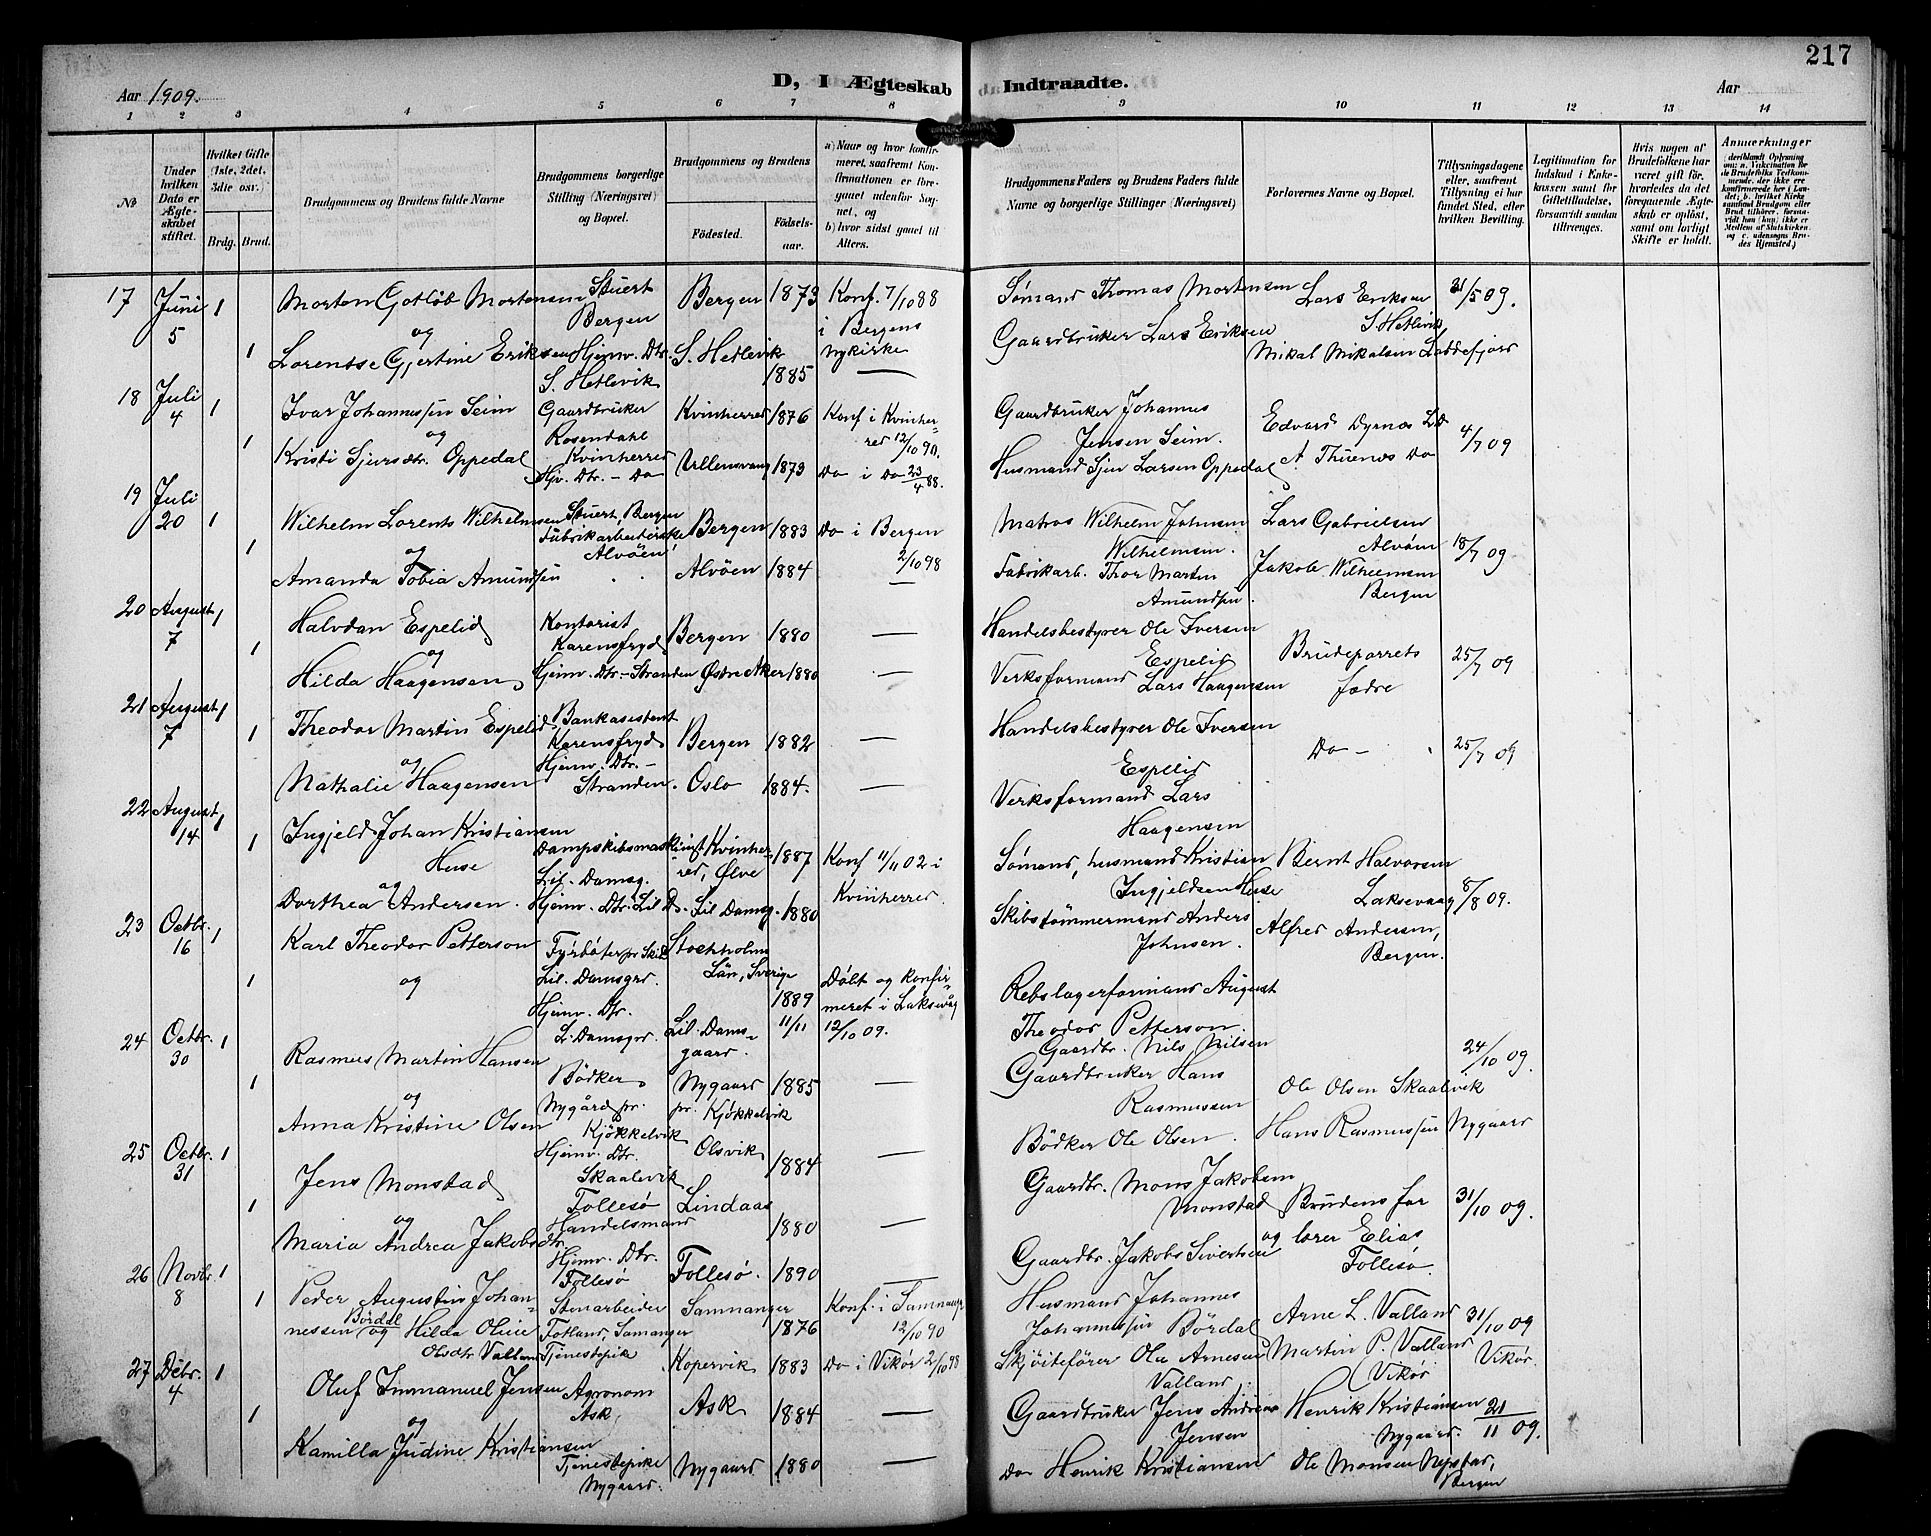 217
Aar 1909.
D, I Ægteskab Indtraadte.
Aar
1 2 3 4 5 6 7 8 9 10 11 12 13 14
No
Under hvilken Dato er Ægteskabet stiftet.
Hvilket Gifte (1ste, 2det, 3die osv.)
Brdg. Brud.
Brudgommens og Brudens fulde Navne
Brudgommens borgerlige Stilling (Næringsvei) og Bopel.
Brudgommens og Brudens
Fødested.
Fødselsaar.
a) Naar og hvor konfirmeret, saafremt Konfirmationen er foregaaet udenfor Sognet, og
b) hvor sidst gaaet til Alters.
Brudgommens Faders og Brudens Faders fulde Navne og borgerlige Stillinger (Næringsvei)
Forlovernes Navne og Bopel.
Tillysningsdagene eller, saafremt Tillysning ei har fundet Sted, efter hvilken Bevilling.
Legitimation for Indskud i Enkekassen samt for Giftetilladelse, forsaavidt saadan tiltrænges.
Hvis nogen af Brudefolkene har været gift før, hvorledes da det foregaaende Ægteskab er opløst, samt om lovligt Skifte er holdt.
Anmærkninger
17 Juni 5 1 Morton Gotlob Mortensen Stuert Bergen Bergen 1873 Konf. 7/10 88 i Bergens Nykirke Sømand Thomas Mortensen Lars Eriksen S. Hetlevik 31/5 09.
og
1 Lorentse Gjertine Eriksen Hjemv. Dtr. S. Hetlevik S. Hetlevik 1885 — Gaardbruker Lars Eriksen Mikal Mikalsen Laddefjord
18 Juli 4 1 Ivar Johannessen Seim Gaardbruker Rosendahl Kvinherred Kvinherred 1876 Konf i Kvinherred 12/10 90. Gaardbruker Johannes Jensen Seim. Edvard Dyrnes LD 4/7 09
og
1 Kristi Sjursdtr. Oppedal Hjv. Dtr. - Do Ullensvang 1873 Do i Do 23/4 88. Husmand Sjur Larsen Oppedal A Thuenes Do
19 Juli 20 1 Wilhelm Lorents Wilhelmsen Stuert, Bergen Bergen 1883 Do i Bergen 2/10 98 Matros Wilhelm Johnsen Wilhelmsen. Lars Gabrielsen Alvøen 18/7 09
og
1 Amanda Tobia Amundsen Fabrikarbeiderske Alvöen Alvöen 1884 — Fabrikarb. Thor Martin Amundsen. Jakob Wilhelmsen Bergen
20 August 7 1 Halvdan Espelid Kontorist Karensfryd Bergen 1880 — Handelsbestyrer Ole Iversen Espelid Brudeparrets fædre 25/7 09
og
1 Hilda Haagensen Hjemv. Dtr. - Stranden Østre Aker 1880 — Verksformand Lars Haagensen
21 August 7 1 Theodor Martin Espelid Bankasistent Karensfryd Bergen 1882 — Handelsbestyrer Ole Iversen Espelid Do - 25/7 09
og
1 Nathalie Haagensen Hjemv. Dtr. - Stranden. Oslo 1884. — Verksformand Lars Haagensen
22 August 14 1 Ingjeld Johan Kristiansen Huse Dampskibsmaskinist Lil. Damsg. Kvinherred, Ølve 1887 Konf 11/11 02 i Kvinherred. Sømand, husmand Kristian Ingjeldsen Huse Bernt Halvorsen Laksevaag 8/8 09.
og
1 Dorthea Andersen. Hjemv. Dtr. Lil D. Lil Damsg. 1880 Skibstømmermand Anders Johnsen. Alfred Andersen, Bergen.
23 Octbr. 16 1 Karl Theodor Petterson Fyrbøter pr Skib Lil. Damsgrd. Stockholms Län, Sverige 1889 11/11 Døbt og konfirmeret i Laksevåg 12/10 09. Rebslagerformand August Theodor Petterson.
1 og Hjemv. Dtr. L. Damsgrd. Lil. Damsgaard. Gaardbr. Nils Nilsen
24 Octbr. 30 1 Rasmus Martin Hansen Bödker Nygård pr. Kjøkkelvik Nygaard pr. Kjøkkelvik 1885 — Gaardbruker Hans Rasmussen Ole Olsen Skaalevik 24/10 09.
og
1 Anna Kristine Olsen Hjemv. Dtr. Skaalevik Olsvik 1884 — Bödker Ole Olsen. Hans Rasmussen Nygaard
25 Octbr. 31 1 Jens Monstad Follesø Handelsmand Lindaas 1880 — Gaardbr. Mons Jakobsen Monstad Brudens far 31/10 09.
og
1 Maria Andrea Jakobsdtr. Hjemv. Dtr. Follesø Follesø. 1890 — Gaardbr. Jakob Sivertsen og lærer Elias Follesø.
26 Novbr. 8 1 Peder Augustin Johannessen Børdal Stenarbeider Totland, Samanger Samnanger 1876 Konf. i Samnanger 12/10 90 Husmand Johannes Johannessen Børdal Arne L. Valland 31/10 09 Vikør.
1 og Hilda Oline Olsdtr Valland Tjenestepike Kopervik 1883 Do i Vikør 2/10 98 Skjøitefører Ola Arnesen Valland. Martin P. Valland Vikør
27 Debr. 4 1 Oluf Immanuel Jensen Agronom Ask Ask 1884 — Gaardbruker Jens Andreas Jensen Henrik Kristiansen Nygaard. 21/11 09.
og
1 Kamilla Judine Kristiansen Tjenestepike Nygaard. Nygaard 1880 — Do Henrik Kristiansen Ole Monsen Nipstad, Bergen